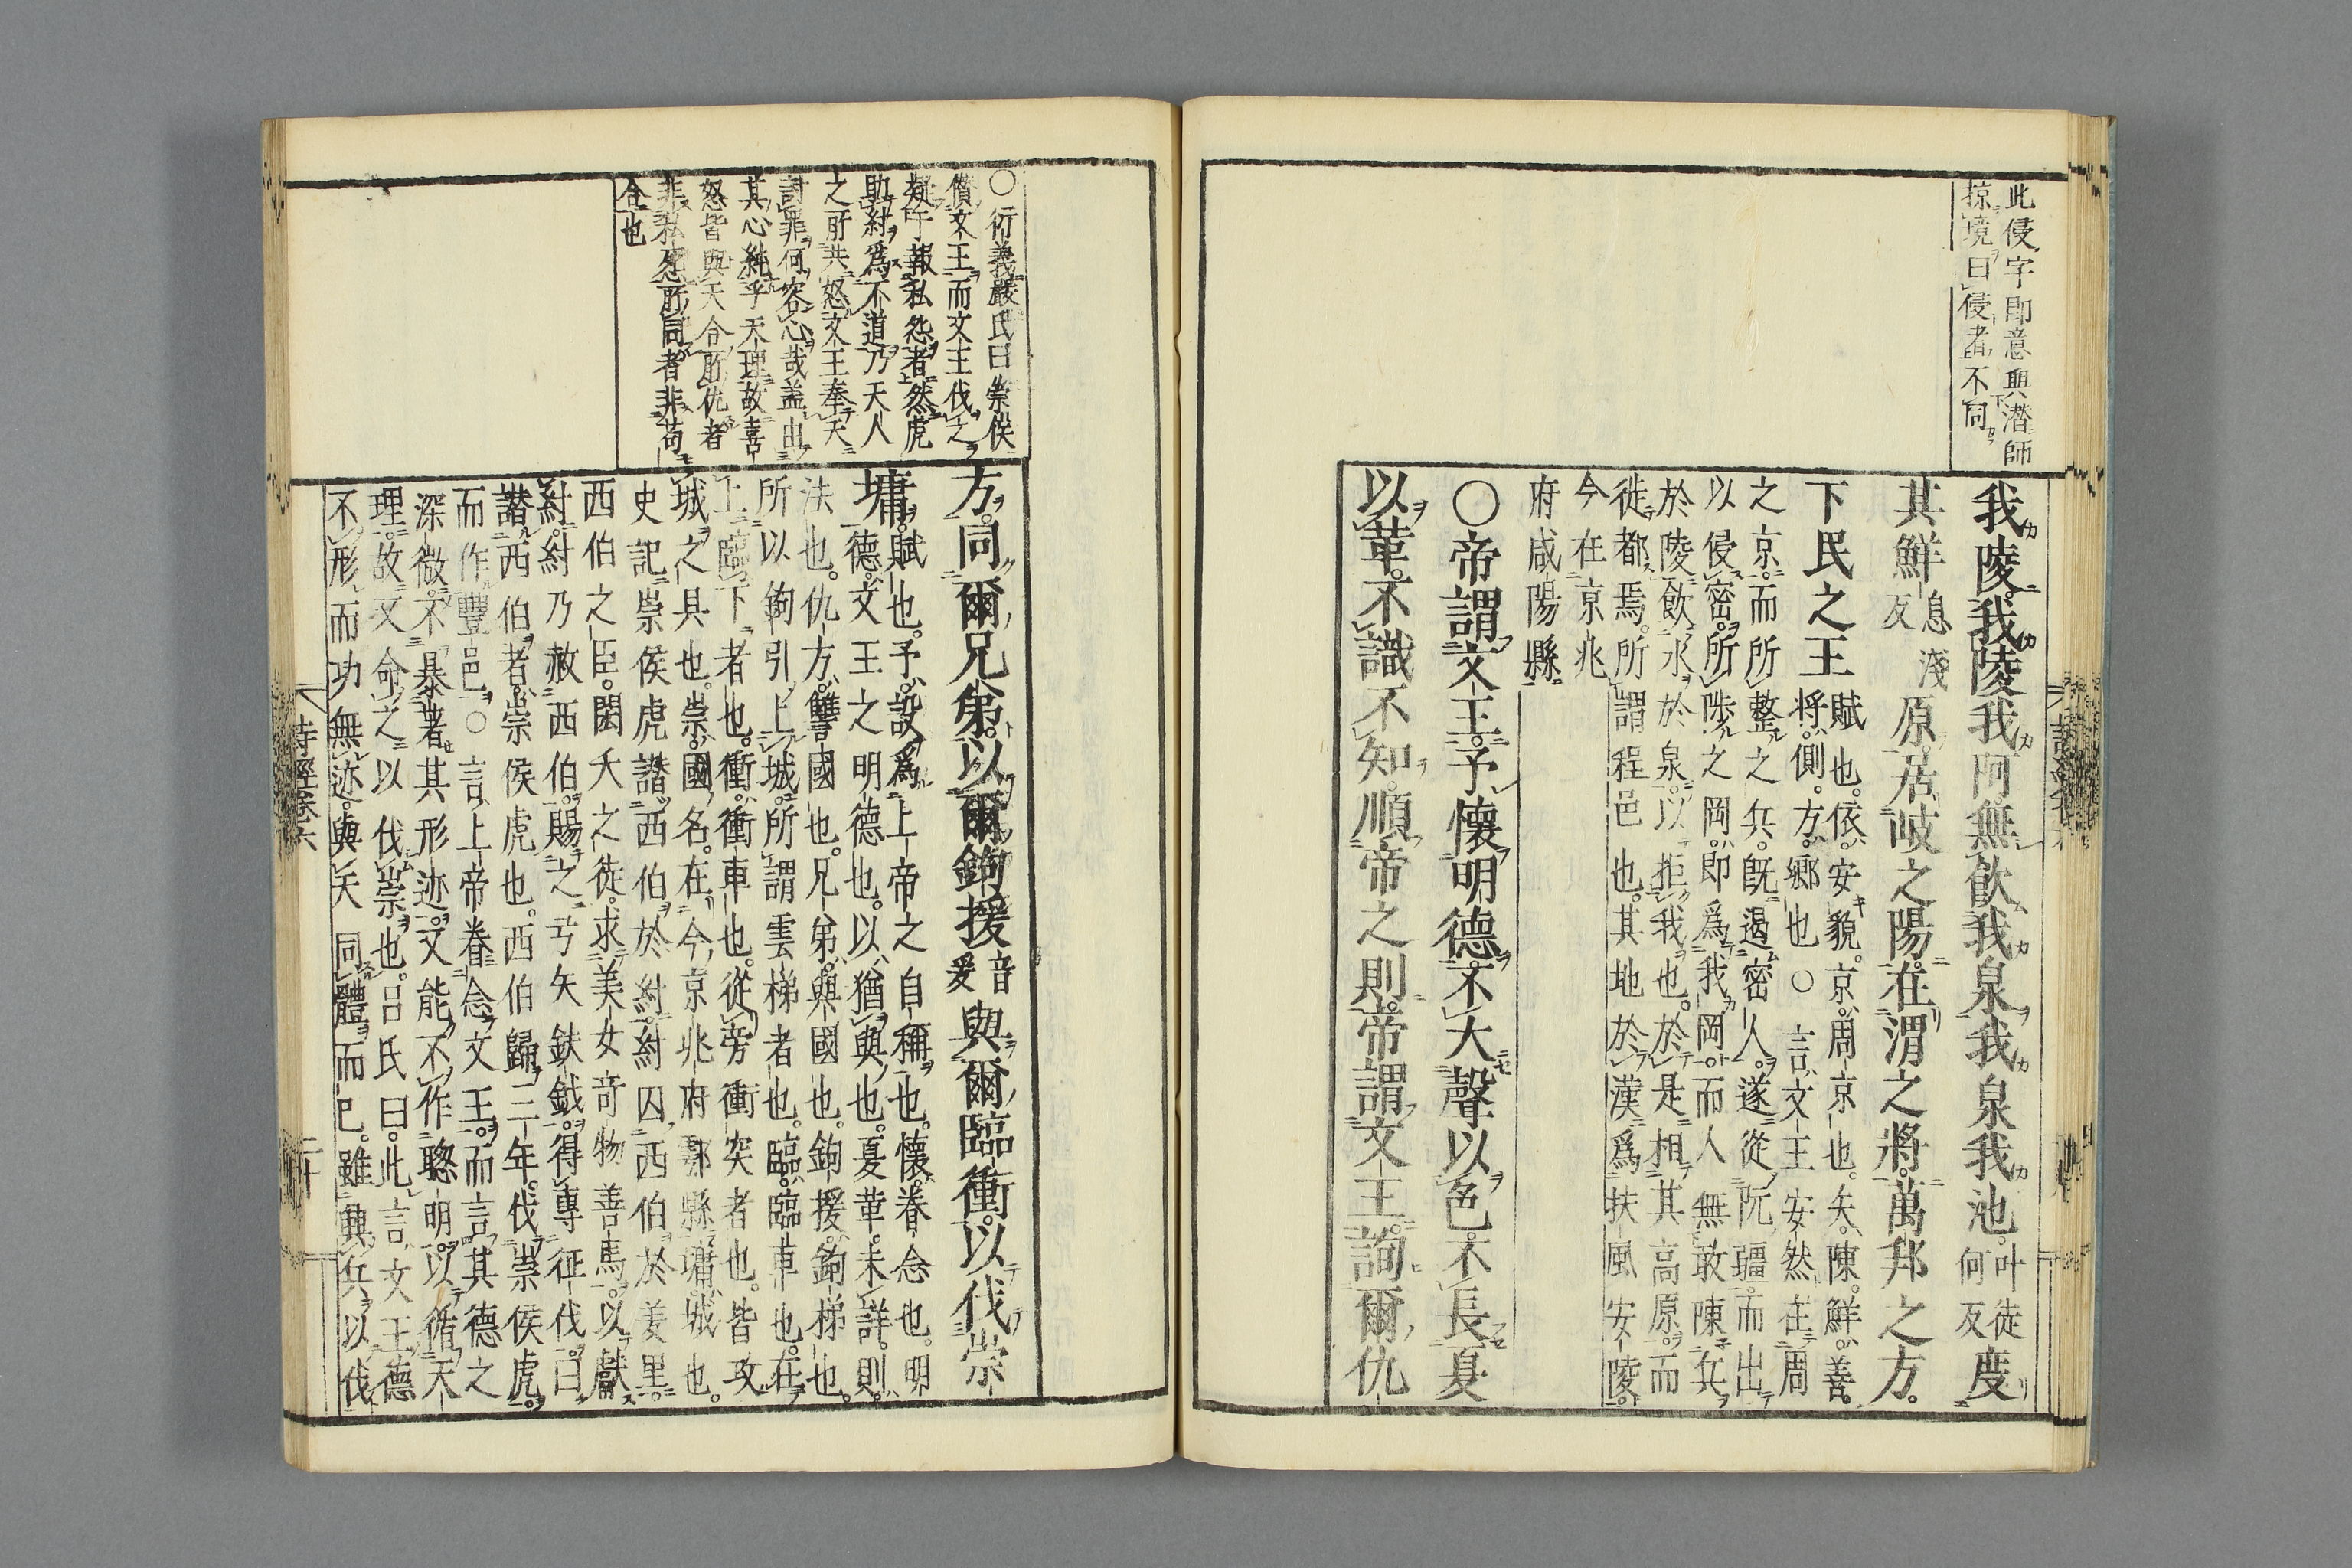 此侵字即意與潜師
掠境曰侵者不同
我陵我陵我阿無飲我泉我泉我池叶徒何反度
其鮮息淺反原居岐之陽在渭之將萬邦之方
下民之王賦也依安貌京周京也矢陳鮮善
將側方鄉也○言文王安然在周
之京而所整之兵旣遏密人遂從阮疆而出
以侵密所陟之岡即爲我岡而人無敢陳兵
於陵飲水於泉以拒我也於是相其高原而
徙都焉所謂程邑也其地於漢爲扶風安陵
今在京兆
府咸陽縣
○帝謂文王予懷明德不大聲以色不長夏
以革不識不知順帝之則帝謂文王詢爾仇
○衍義嚴氏曰崇侯
僣文王而文王伐之
疑于報私怨者然虎
助紂爲不道乃天人
之所共怒文王奉天
討罪何容心哉盖出
其心純乎天理故喜
怒皆與天合所仇者
非私怨所同者非苟
合也
方同爾兄弟以爾鉤援音爰與爾臨衝以伐崇
墉賦也予設爲上帝之自稱也懷眷念也明
德文王之明德也以猶與也夏革未詳則
法也仇方讐國也兄弟與國也鉤援鉤梯也
所以鉤引上城所謂雲梯者也臨臨車也在
上臨下者也衝衝車也從旁衝突者也皆攻
城之具也崇國名在今京兆府鄠縣墉城也
史記崇侯虎譖西伯於紂紂囚西伯於羑里
西伯之臣閎夭之徒求美女奇物善馬以獻
紂紂乃赦西伯賜之弓矢鈇鉞得專征伐曰
譖西伯者崇侯虎也西伯歸三年伐崇侯虎
而作豐邑○言上帝眷念文王而言其德之
深微不暴著其形迹又能不作聰明以循天
理故又命之以伐崇也呂氏曰此言文王德
不形而功無迹與天同體而已雖興兵以伐
詩經卷六
二十